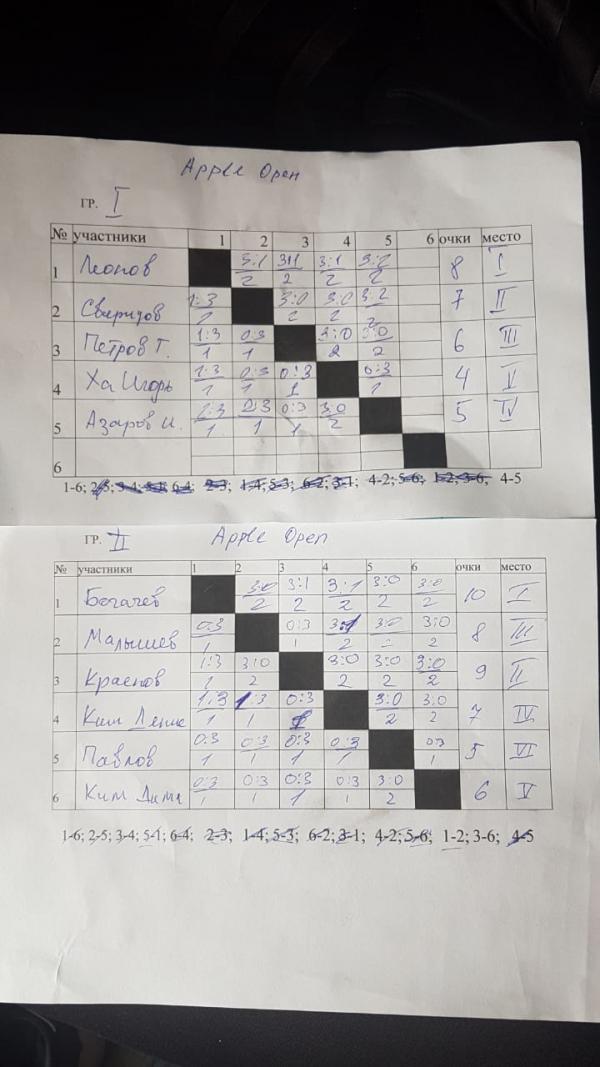 Apple Open
ГР. I
№ участники 1 2 3 4 5 6 очки место
1 Леонов 3:1 3:1 3:1 3:2 8 I
2 2 2 2
2 Свиридов 1:3 3:0 3:0 3:2 7 II
2 2 2
3 Петров Г. 1:3 0:3 3:0 3:0 6 III
1 1 2 2
4 Ха Игорь 1:3 0:3 0:3 0:3 4 V
1 1 1 1
5 Азаров И. 2:3 2:3 0:3 3:0 5 IV
1 1 1 2
6
1-6; 2-5; 3-4; 5-1; 6-4; 2-3; 1-4; 5-3; 6-2; 3-1; 4-2; 5-6; 1-2; 3-6; 4-5
ГР. II Apple Open
№ участники 1 2 3 4 5 6 очки место
1 Богачев 3:0 3:1 3:1 3:0 3:0 10 I
2 2 2 2 2
2 Малышев 0:3 0:3 3:1 3:0 3:0 8 III
1 1 2 2 2
3 Краснов 1:3 3:0 3:0 3:0 3:0 9 II
1 2 2 2 2
4 Ким Денис 1:3 1:3 0:3 3:0 3:0 7 IV
1 1 1 2 2
5 Павлов 0:3 0:3 0:3 0:3 0:3 5 VI
1 1 1 1 1
6 Ким Дима 0:3 0:3 0:3 0:3 3:0 6 V
1 1 1 1 2
1-6; 2-5; 3-4; 5-1; 6-4; 2-3; 1-4; 5-3; 6-2; 3-1; 4-2; 5-6; 1-2; 3-6; 4-5